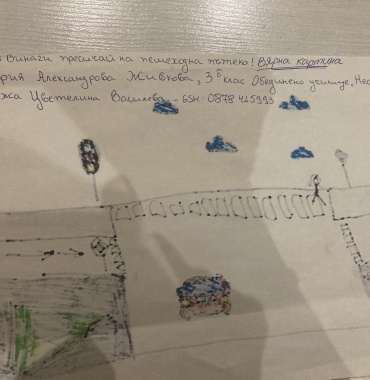 Винаги пресичай на пешеходна пътека! Вярна картина
рия Александрова Живкова, 3 б клас Обединено училище,
Цветелина Василева - GSM 0878 425993